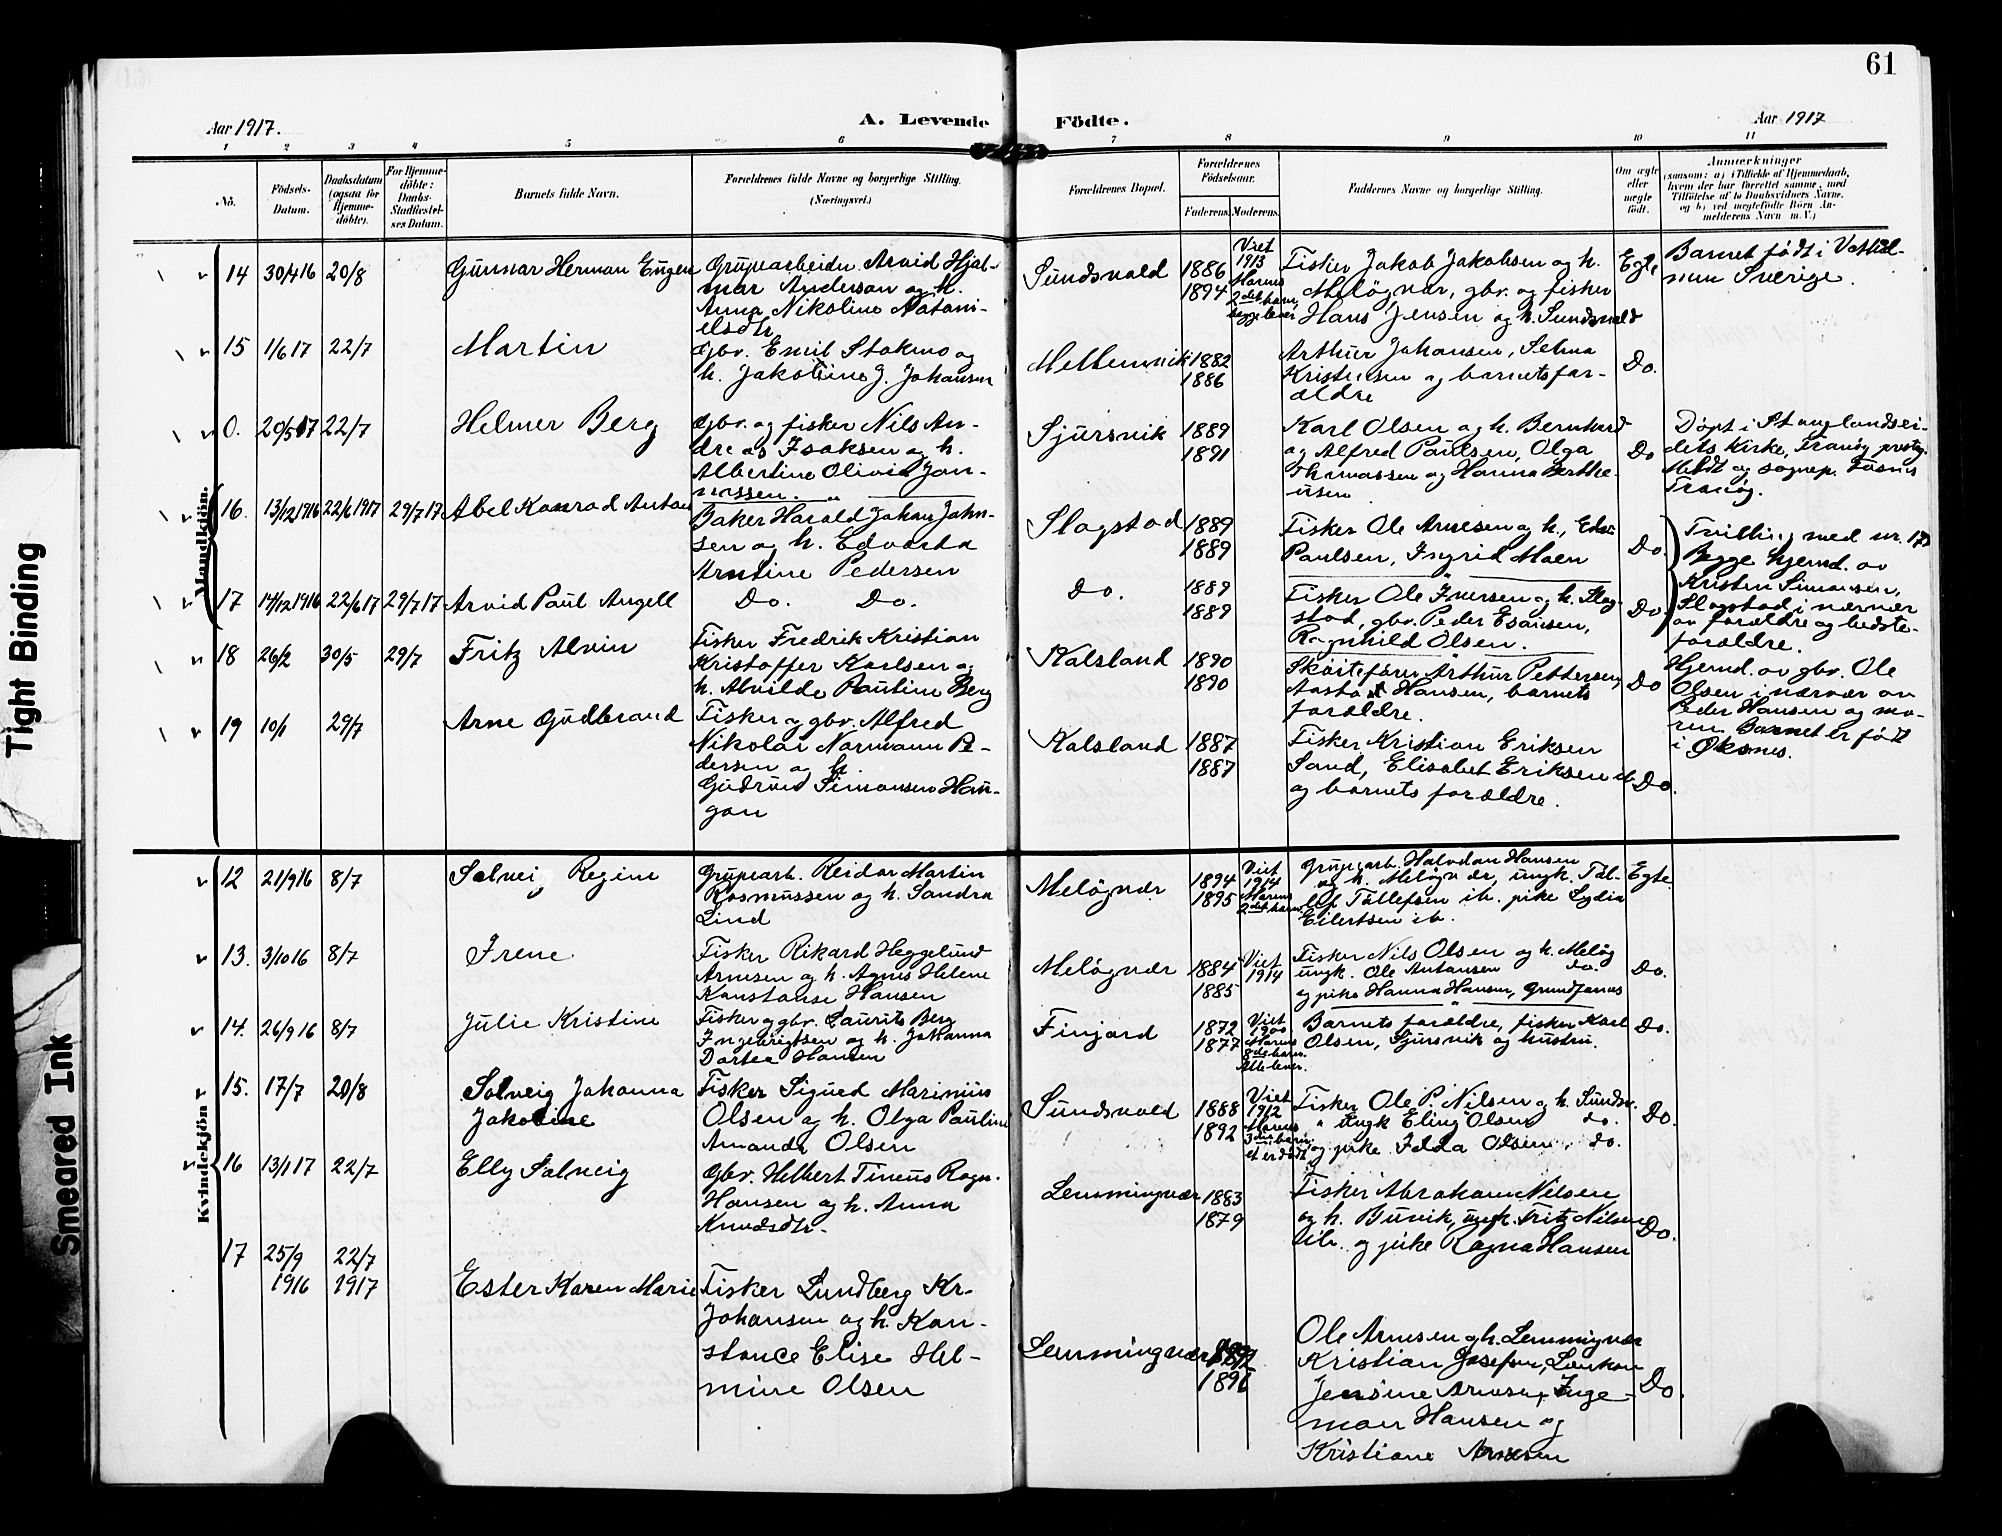 61
Aar 1917.
A. Levende Födte.
Aar 1917
1 2 3 4 5 6 7 8 9 10 11
No.
Födsels-
Datum.
Daabsdatum
(ogsaa for
Hjemme-
döbte).
For Hjemme-
döbte:
Daabs-
Stadfæstel-
ses Datum.
Barnets fulde Navn.
Forældrenes fulde Navne og borgerlige Stilling.
(Næringsvei.)
Forældrenes Bopæl.
Forældrenes
Födselsaar.
Faderens. Moderens.
Faddernes Navne og borgerlige Stilling.
Om ægte
eller
uægte
födt.
Anmærkninger
(saasom: a) i Tilfælde af Hjemmedaab,
hvem der har forrettet samme, med
Tilföielse af to Daabsvidners Navne,
og b) ved uægtefödte Börn An-
melderens Navn m. V.)
Mandkjön.
14 30/4 16 20/8
Gunnar Herman Eugen
Grupearbeider Arvid Hjal-
mar Anderson og h.
Anna Nikoline Natani-
elsdtr
Sundsvold
1886
1894
Viet
1913
Mорens
2det barn,
begge lever
Fisker Jakob Jakobsen og h.
Meløgvær, gbr. og fisker
Hans Jensen og h. Sundsvold
Egte
Barnet født i
Sverige.
15 1/6 17 22/7
Martin
Gbr. Emil Stokmo og
h. Jakobine J. Johansen
1882
1886
Arthur Johansen, Selma
Kristensen og barnets for-
ældre
Do.
0. 29/5 17 22/7
Helmer Berg
Gbr. og fisker Nils An-
dreas Isaksen og h.
Albertine Olivia Jan-
Sjursvik
1889
1891
Karl Olsen og h. Bernhard
og Alfred Paulsen, Olga
Thomassen og Hanna Berthe-
usen
Do
Døpt i Stanglandsei-
dets Kirke, Tranøy prestg.
Meldt og sognep.
Tranøy.
16. 13/12 1916 22/6 1917 29/7 17
Abel Konrad Anton
Baker Harald Johan John-
sen og h. Edvarda
Arntine Pedersen
Slagstad
1889
1889
Fisker Ole Arnesen og h.,
Paulsen, Ingrid Moen
Do.
Tvilling med nr. 17
Begge hjemd. av
Kristen Simonsen,
Slagstad i nærvær
av forældre og bedste-
forældre.
17 14/12 1916 22/6 17 29/7 17
Arvid Paul Angell
Do. Do.
Do.
1889
1889
Fisker Ole Iversen og h. Slag-
stad, gbr. Peder Esaisen,
Ragnhild Olsen.
Do.
18 26/2 30/5 29/7
Fritz Alvin
Fisker Fredrik Kristian
Kristoffer Karlsen og
h. Alvilde Pauline Berg
Kalsland
1890
1890
Skøitefører Arthur Pettersen,
Aasta Hansen, barnets
forældre.
Do
Hjemd. av gbr. Ole
Olsen i nærvær av
Peder Hansen og mo-
ren. Barnet er født
i Øksnes.
19 10/1 29/7
Arne Gudbrand
Fisker og gbr. Alfred
Nikolai Normann Pe-
dersen og h.
Gudrun Simonsen Hau-
gan
Kalsland
1887
1887
Fisker Kristian Eriksen
Sand, Elisabet Eriksen ib.
og barnets forældre.
Do.
Kvindekjön
12 21/9 16 8/7
Solveig Regine
Grupearb. Reidar Martin
Rasmussen og h. Sandra
Lind
Meløgvær
1894
1895
Viet
1914
Morens
2det barn
Grupearb. Halvdan Hansen
og h. Meløgvær, ungk. Tol-
lef Tollefsen ib. pike Lydia
Eilertsen ib.
Egte
13. 3/10 16 8/7
Irene
Fisker Rikard Heggelund
Arnesen og h. Agnes Helene
Konstanse Hansen
Meløgvær
1884
1885
Viet
1914
Fisker Nils Olsen og h. Meløg
ungk. Ole Antonsen do.
og pike Hanna Hansen,
Do.
14. 26/9 16 8/7
Julie Kristine
Fisker og gbr. Laurits Berg
Ingebrigtsen og h. Johanna
Dortea Hansen
Finjord
1872
1877
Viet
1900
Morens
8de barn.
Alle lever.
Barnets forældre, fisker Karl
Olsen, Sjursvik og hustru.
Do.
15. 17/7 20/8
Solveig Johanna
Jakobine
Fisker Sigurd Marinius
Olsen og h. Olga Pauline
Amanda Olsen
Sundsvold
1888
1892
Viet
1912
Morens
3die barn.
et er dødt
Fisker Ole P. Nilsen og h. Sundsv.
" ungk Eling Olsen do.
og pike Olsen do.
Do.
16 13/1 17 22/7
Elly Solveig
Gbr. Helbert Tineus Ragn.
Hansen og h. Anna
Knudsdtr.
Lemmingvær
1883
1879
Fisker Abraham Nilsen
og h. Buvik, ungk. Fritz Nilsen
ib. og pike Ragna Hansen
Do.
17 25/9 1916 22/7 1917
Ester Karen Marie
Fisker Lundberg Kr.
Johansen og h. Kon-
stance Elise Hel-
mine Olsen
Lemmingvær
Ole Arnesen og h. Lemmingvær
Kristian Josefsen,
Jensine Arnesen, Inge-
mar Hansen og
Kristiane Arnesen
Do.
Tight Binding
Smeared Ink